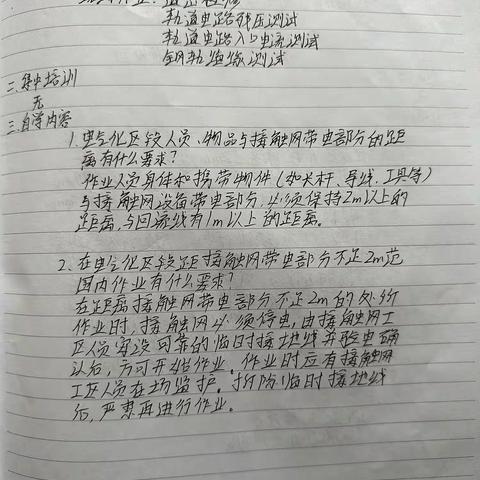 轨道电路残压测试
轨道电路入口电流测试
钢轨绝缘测试
二、集中培训
无
三、自学内容
1. 电气化区段人员、物品与接触网带电部分的距
离有什么要求?
作业人员身体和携带物件(如长杆、导线、工具等)
与接触网设备带电部分,必须保持2m以上的
距离,与回流线有1m以上的距离。
2. 在电气化区段距接触网带电部分不足2m范
围内作业有什么要求?
在距离接触网带电部分不足2m的处所
作业时,接触网必须停电,由接触网工
区人员安设可靠的临时接地线并验电确
认后,方可开始作业。作业时应有接触网
工区人员在场监护。拆除临时接地线
后,严禁再进行作业。